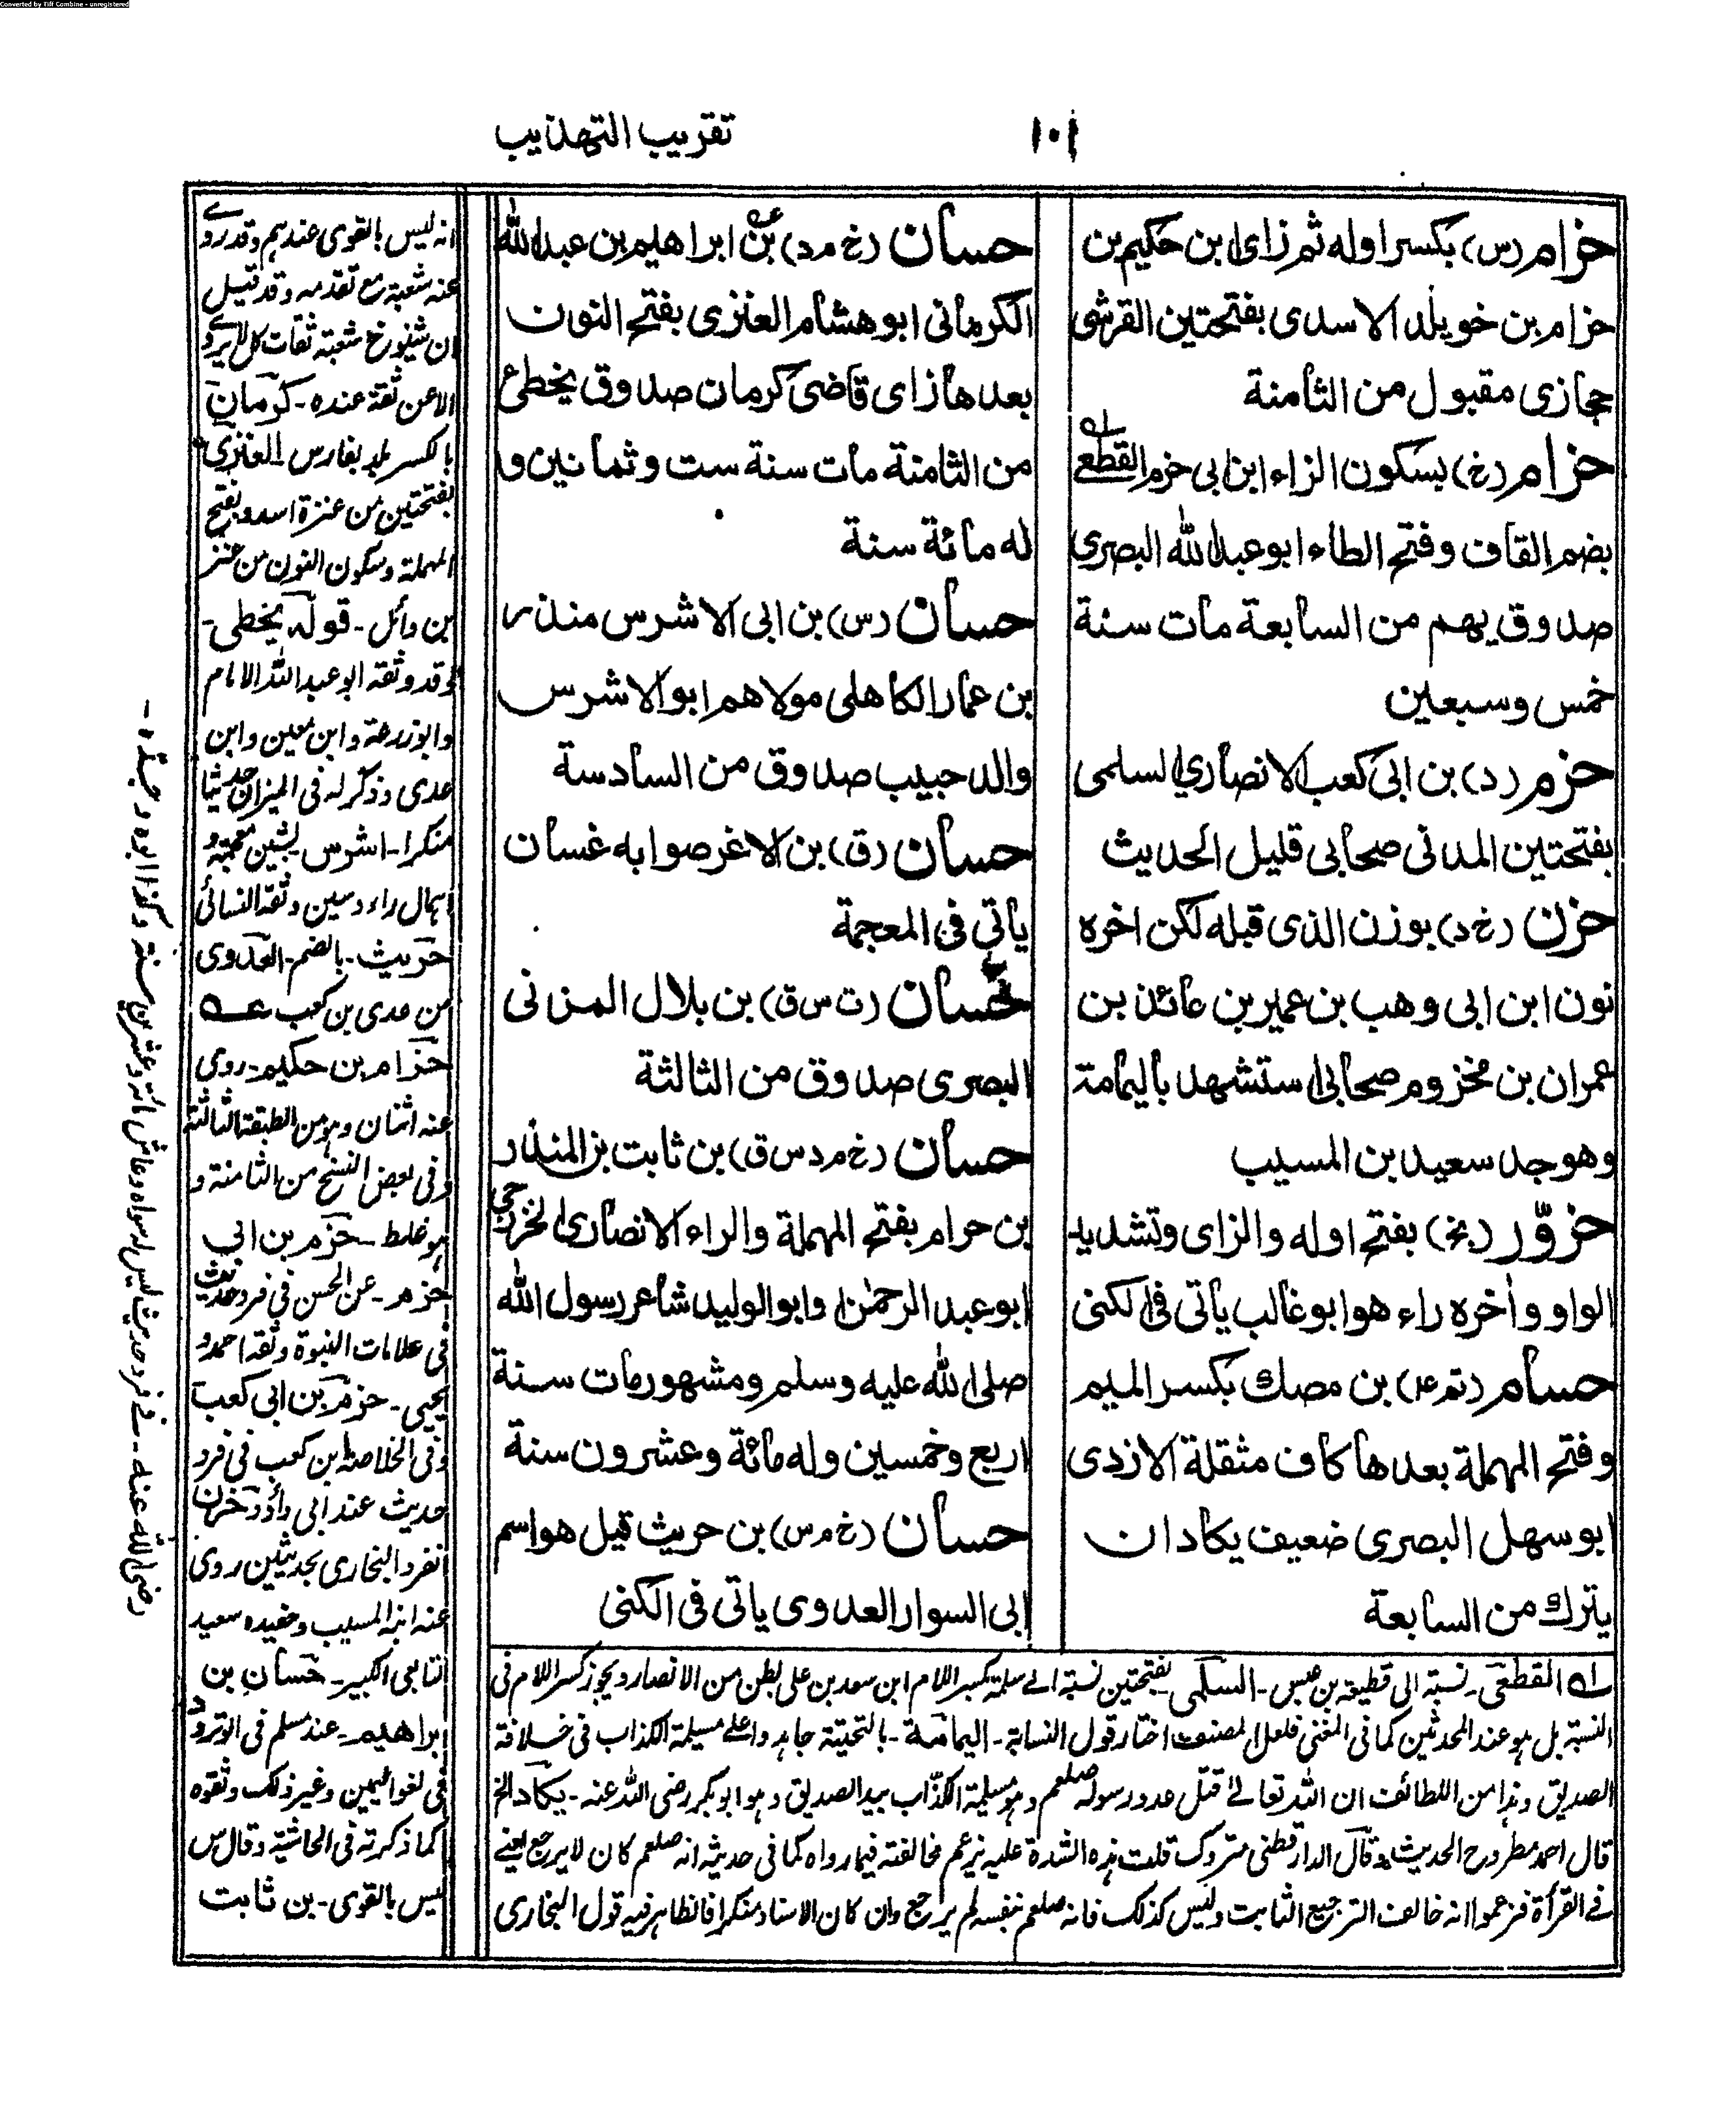 Converted by Tiff Combine - unregistered
١٠١
تقريب التهذيب
حزام (س) بكسر اوله ثم زاى ابن حكيم بن
حزام بن خويلد الاسدى بفتحتين القرشى
حجازى مقبول من الثامنة
حزام (خ) بسكون الزاء ابن ابى حزم القطعى
بضم القاف وفتح الطاء ابو عبد الله البصرى
صدوق يهم من السابعة مات سنة
خمس وسبعين
حزم (د) بن ابى كعب الانصارى السلمى
بفتحتين المدنى صحابى قليل الحديث
حزن (خ د) بوزن الذى قبله لكن اخره
نون ابن ابى وهب بن عمير بن عائذ بن
عمران بن مخزوم صحابى استشهد باليمامة
وهو جد سعيد بن المسيب
حزوّر (بخ) بفتح اوله والزاى وتشديد
الواو وأخره راء هو ابو غالب ياتى فى الكنى
حسام (تم عل) بن مصك بكسر الميم
وفتح المهملة بعدها كاف مثقلة الازدى
ابو سهل البصرى ضعيف يكاد ان
يترك من السابعة
حسان (خ م د) بن ابراهيم بن عبد الله
الكرمانى ابو هشام العنزى بفتح النون
بعدها زاى قاضى كرمان صدوق يخطئ
من الثامنة مات سنة ست وثمانين و
له مائة سنة
حسان (س) بن ابى الاشرس منذر
بن عمار الكاهلى مولاهم ابو الاشرس
والد حبيب صدوق من السادسة
حسان (ق) بن الاغر صوابه غسان
ياتى فى المعجمة
حسان (ت س ق) بن بلال المزنى
البصرى صدوق من الثالثة
حسان (خ م د س ق) بن ثابت بن المنذر
بن حرام بفتح المهملة والراء الانصارى الخزرجى
ابو عبد الرحمٰن وابو الوليد شاعر رسول الله
صلى الله عليه وسلم ومشهور مات سنة
اربع وخمسين وله مائة وعشرون سنة
حسان (خ م س) بن حريث قيل هو اسم
ابى السوار العدوى ياتى فى الكنى
انه ليس بالقوى عندهم وقد روى
عنه شعبة مع تقدمه وقد قيل
ان شيوخ شعبة ثقات كل لا يروى
الا عن ثقة عنده - كرمان
بالكسر بلد بفارس العنزى
بفتحتين من عنزة اسد وبفتح
المهملة وسكون النون من عنز
بن وائل - قوله يخطى -
وقد وثقه ابو عبد الله الامام
وابو زرعة وابن معين وابن
عدى وذكر له فى الميزان حديثا
منكرا - اشرس بشين معجمة و
اهمال راء وسين وثقه النسائى
حريث - بالضم - العدوى
من عدى بن كعب عـه
حزام بن حكيم - روى
عنه اثنان وهو من الطبقة الثالثة
وفى بعض النسخ من الثامنة و
هو غلط - حزم بن ابى
حزم - عن الحسن فى فرد حديث
فى علامات النبوة وثقه احمد و
يحيى - حزم بن ابى كعب
وفى الخلاصة ابن كعب فى فرد
حديث عند ابى داؤد حزن
انفرد البخارى بحديثين روى
عنه ابنه المسيب وحفيده سعيد
التابعى الكبير - حسان بن
ابراهيم - عند مسلم فى الوتر و
فى لغو اليمين وغير ذلك وثقوه
كما ذكرته فى الحاشية وقال س
ليس بالقوى - بن ثابت
رضى الله عنه - فى فرد حديث ليس له سواه وعاش مائة وعشرين سنة وكذا ابوه وجده -
له القطعى - نسبة الى قطيعة بن عبس - السلمى بفتحتين نسبة الى سلمة بكسر اللام ابن سعد بن على بطن من الانصار ويجوز كسر اللام فى
النسبة بل هو عند المحدثين كما فى المغنى فلعل المصنف اختار قول النسابة - اليمامة - بالتحتية جاهدوا على مسيلمة الكذاب فى خلافة
الصديق وهذا من اللطائف ان الله تعالى قتل عدو رسوله صلعم وهو مسيلمة الكذاب بيد الصديق وهو ابو بكر رضى الله عنه - يكاد الخ
قال احمد مطروح الحديث وقال الدارقطنى متروك قلت هذه الشدة عليه بزعم مخالفته فيما رواه كما فى حديثه انه صلعم كان لا يرجع يعنى
فى القرأة فزعموا انه خالف الترجيع الثابت وليس كذلك فانه صلعم بنفسه لم يرجع وان كان الاسناد منكرا فالظاهر فيه قول البخارى